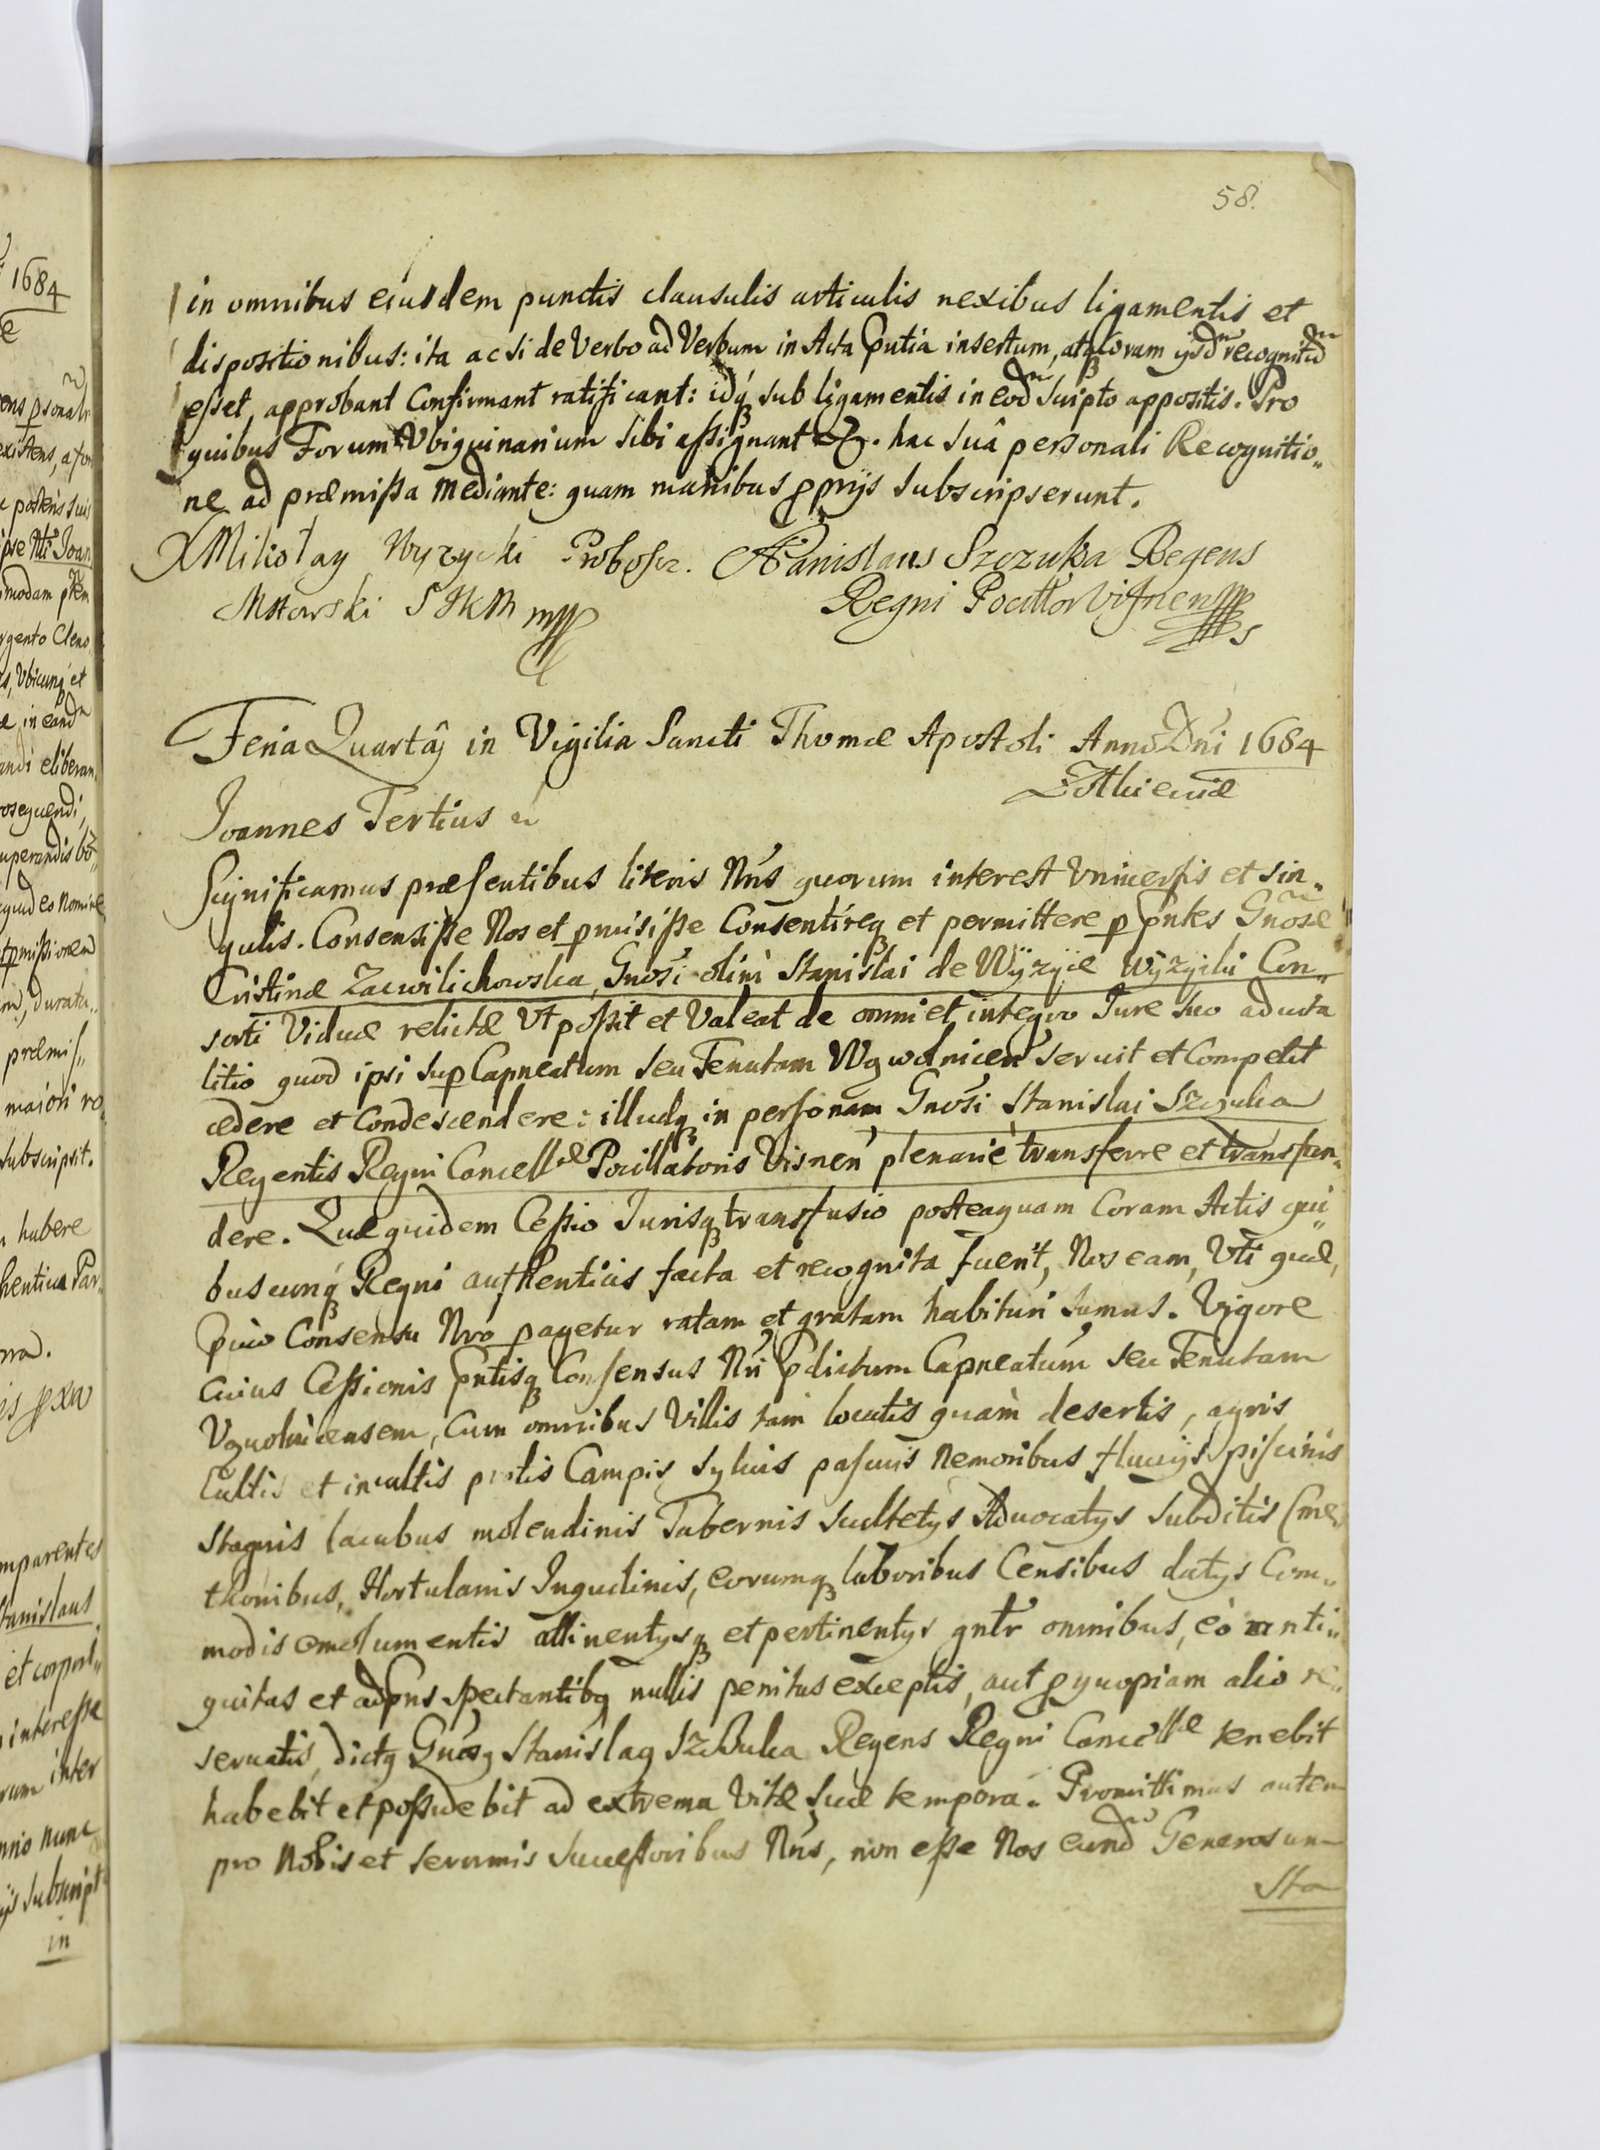 58.
in omnibus eiusdem punctis clausulis articulis nexibus ligamentis et
dispositionibus: ita ac si de Verbo ad Verbum in Acta pntia insertum, atq coram ysdm recognitum
esset, approbant Confirmant ratificant: idq sub ligamentis in eodm scripto appositis. Pro
quibus Forum Vbiquinarium sibi assignant &. hac suâ personali Recognitio„
ne ad præmissa mediante: quam manibus pprijs subscripserunt.
XMikołay Wyrzycki Probosz. Stanislaus Szczuka Regens
SJKM mpp Regni Pocittor Visnen mpp
Feria Quartâ in Vigilia Sancti Thomæ Apostoli Anno Dni 1684
Zolkieuiæ
Joannes Tertius &
Significamus præsentibus literis Nris quorum interest Vniuersis et sin„
gulis. Consensisse Nos et pmisisse Consentireq et permittere p pntes Gnosæ
Cristinæ Zacwilichowska, Gnosi olim Stanislai de Wÿzÿce Wÿzÿcki Con„
sorti Viduæ relictæ Vt possit et Valeat de omni et integro Jure suo aduita
litio quod ipsi sup Capneatum seu Tenutam Wgwolnicen seruit et Competit
cedere et Condescendere: illudq in personam Gnosi Stanislai Szczuka
Regentis Regni Cancellæ Pocillatoris Visnen plenarie transferre et transfun„
dere. Quæ quidem Cessio Jurisq transfusio posteaquam Coram Actis qui„
buscunq Regni authenticis facta et recognita fuerit, Nos eam, Vti quæ,
puio Consensu Nro pagetur ratam et gratam habituri sumus. Vigore
Cuius Cessionis pntisq Consensus Nri pdictum Capneatum seu Tenutam
Vguolnicensem, Cum omnibus Villis tam locatis quam desertis, agris
Cultis et incultis pratis Campis syluis pascuis nemoribus fluuijs piscinis
stagnis lacubus molendinis Tabernis scultetys Aduocatys subditis Cme„
thonibus, Hortulanis Inquilinis, eorumq laboribus Censibus datys Com„
modis emolumentis attinentysq et pertinentys gntr omnibus, eò anti„
quitus et adpns spectantibq nullis penitus exceptis, aut p quopiam alio re„
seruatis, dictq Gnosq Stanislaq Szczuka Regens Regni Cancellæ tenebit
habebit et possidebit ad extrema Vitæ suæ tempora. Promittimus autem
pro Nobis et serenmis Successoribus Nris, non esse Nos eundm Generosum
Sta